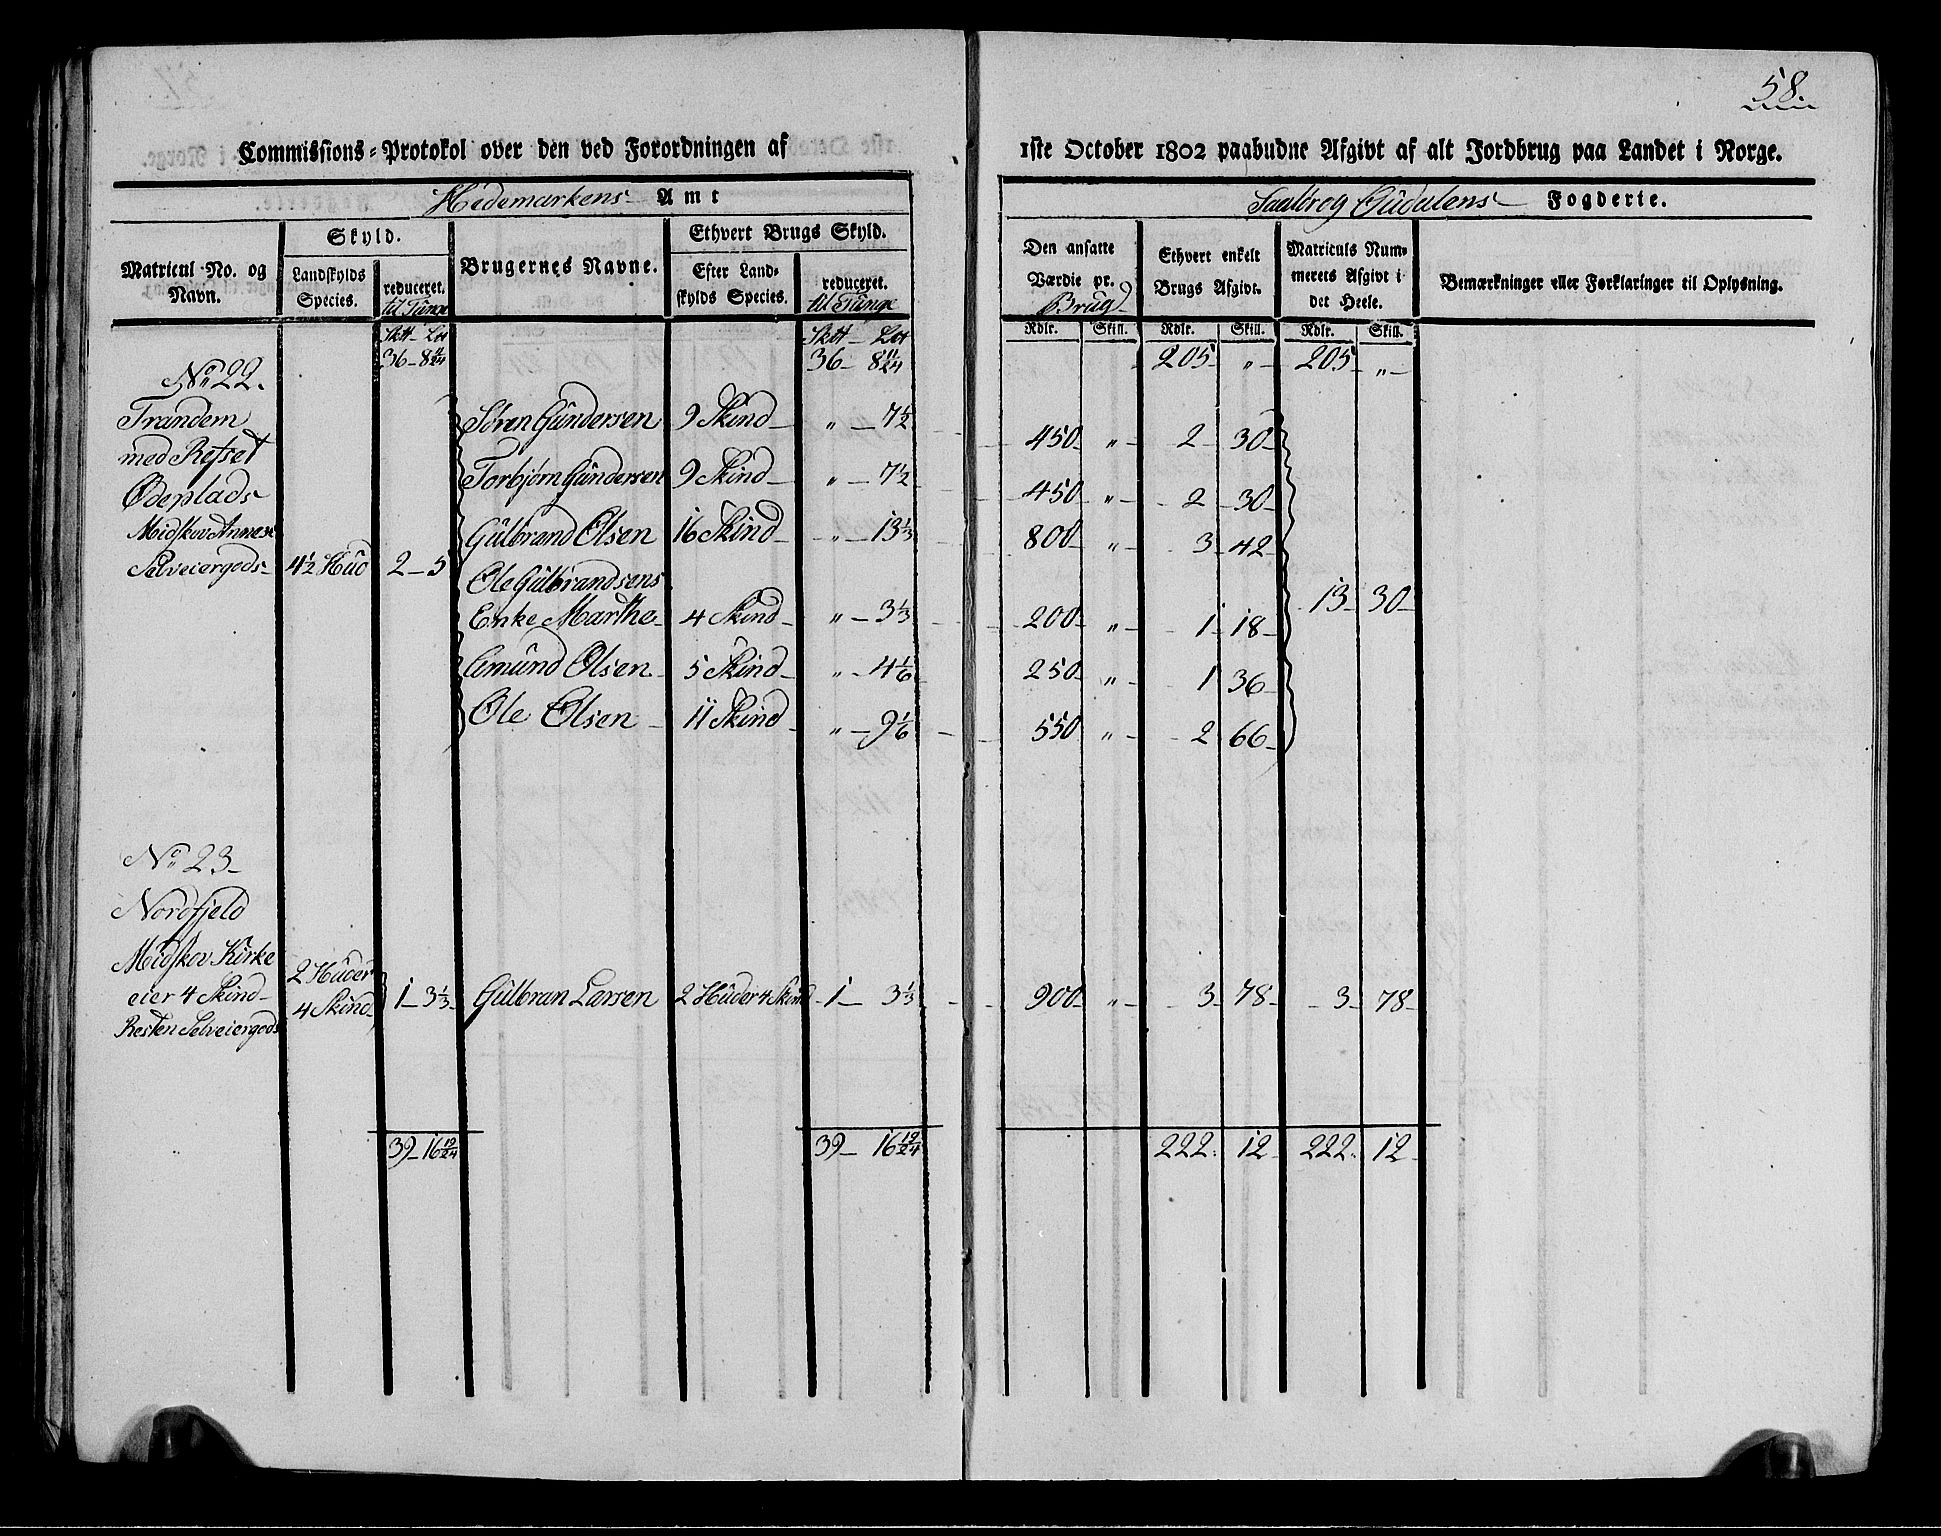 58.
Commissions-Protokol over den ved Forordningen af 1ste October 1802 paabudne Afgivt af alt Jordbrug paa Landet i Norge.
Hedemarkens Amt
Fogderie.
Matricul No. og Navn.
Skyld.
Landskylds Species.
reduceret. til Tunge
Brugernes Navne.
Ethvert Brugs Skyld.
Efter Landskylds Species.
reduceret. til Tunge
Den ansatte Værdie pr. Brug
Ethvert enkelt Brugs Afgivt.
Matriculs Nummerets Afgivt i det Heele.
Bemærkninger eller Forklaringer til Oplysning.
Sktt - Lot Sktt - Lot Rdlr. Skill. Rdlr. Skill. Rdlr. Skill.
36 - 8 11/24 36 - 8 11/24 205 " 205 "
No 22.
Trandem
med Refset
Ødeplads
Midskov Annex
Selveiergods 4½ Hud 2 - 5
Søren Gundersen 9 Skind " - 7½ 450 " 2 30
Torbjørn Gundersen 9 Skind " - 7½ 450 " 2 30
Gulbrand Olsen 16 Skind " - 13⅓ 800 " 3 42
Ole Gulbrandsens
Enke Marthe 4 Skind " - 3⅓ 200 " 1 18
13 30
Amund Olsen 5 Skind " - 4 1/6 250 " 1 36
Ole Olsen 11 Skind " - 9 1/6 550 " 2 66
No 23
Nordfjeld
Midskov Kirke
eier 4 Skind
Resten Selveiergods
2 Huder
4 Skind 1 - 3⅓ Gulbran Larsen 2 Huder 4 Skind 1 - 3⅓ 900 " 3 78 3 78
39 - 16 19/24 39 - 16 19/24 222. 12 222. 12